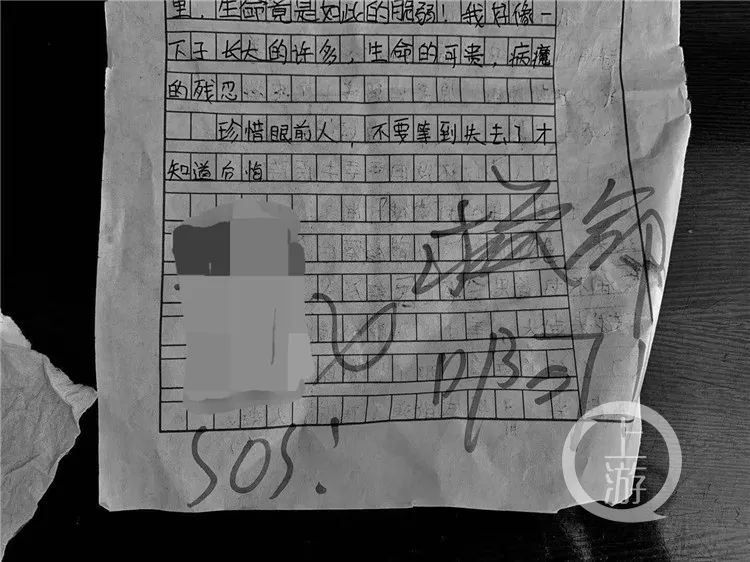 里，生命竟是如此的脆弱！我好像一
下子长大的许多，生命的可贵，病魔
的残忍……
珍惜眼前人，不要等到失去了才
知道后悔
救命
啊！
SOS！
上游